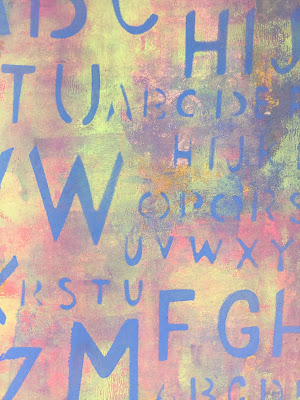 ABC
HIJ
TU
ABCDE
HIJ
W
OPQRS
UVWXY
X
RSTU
FGH
Z M
ABCD